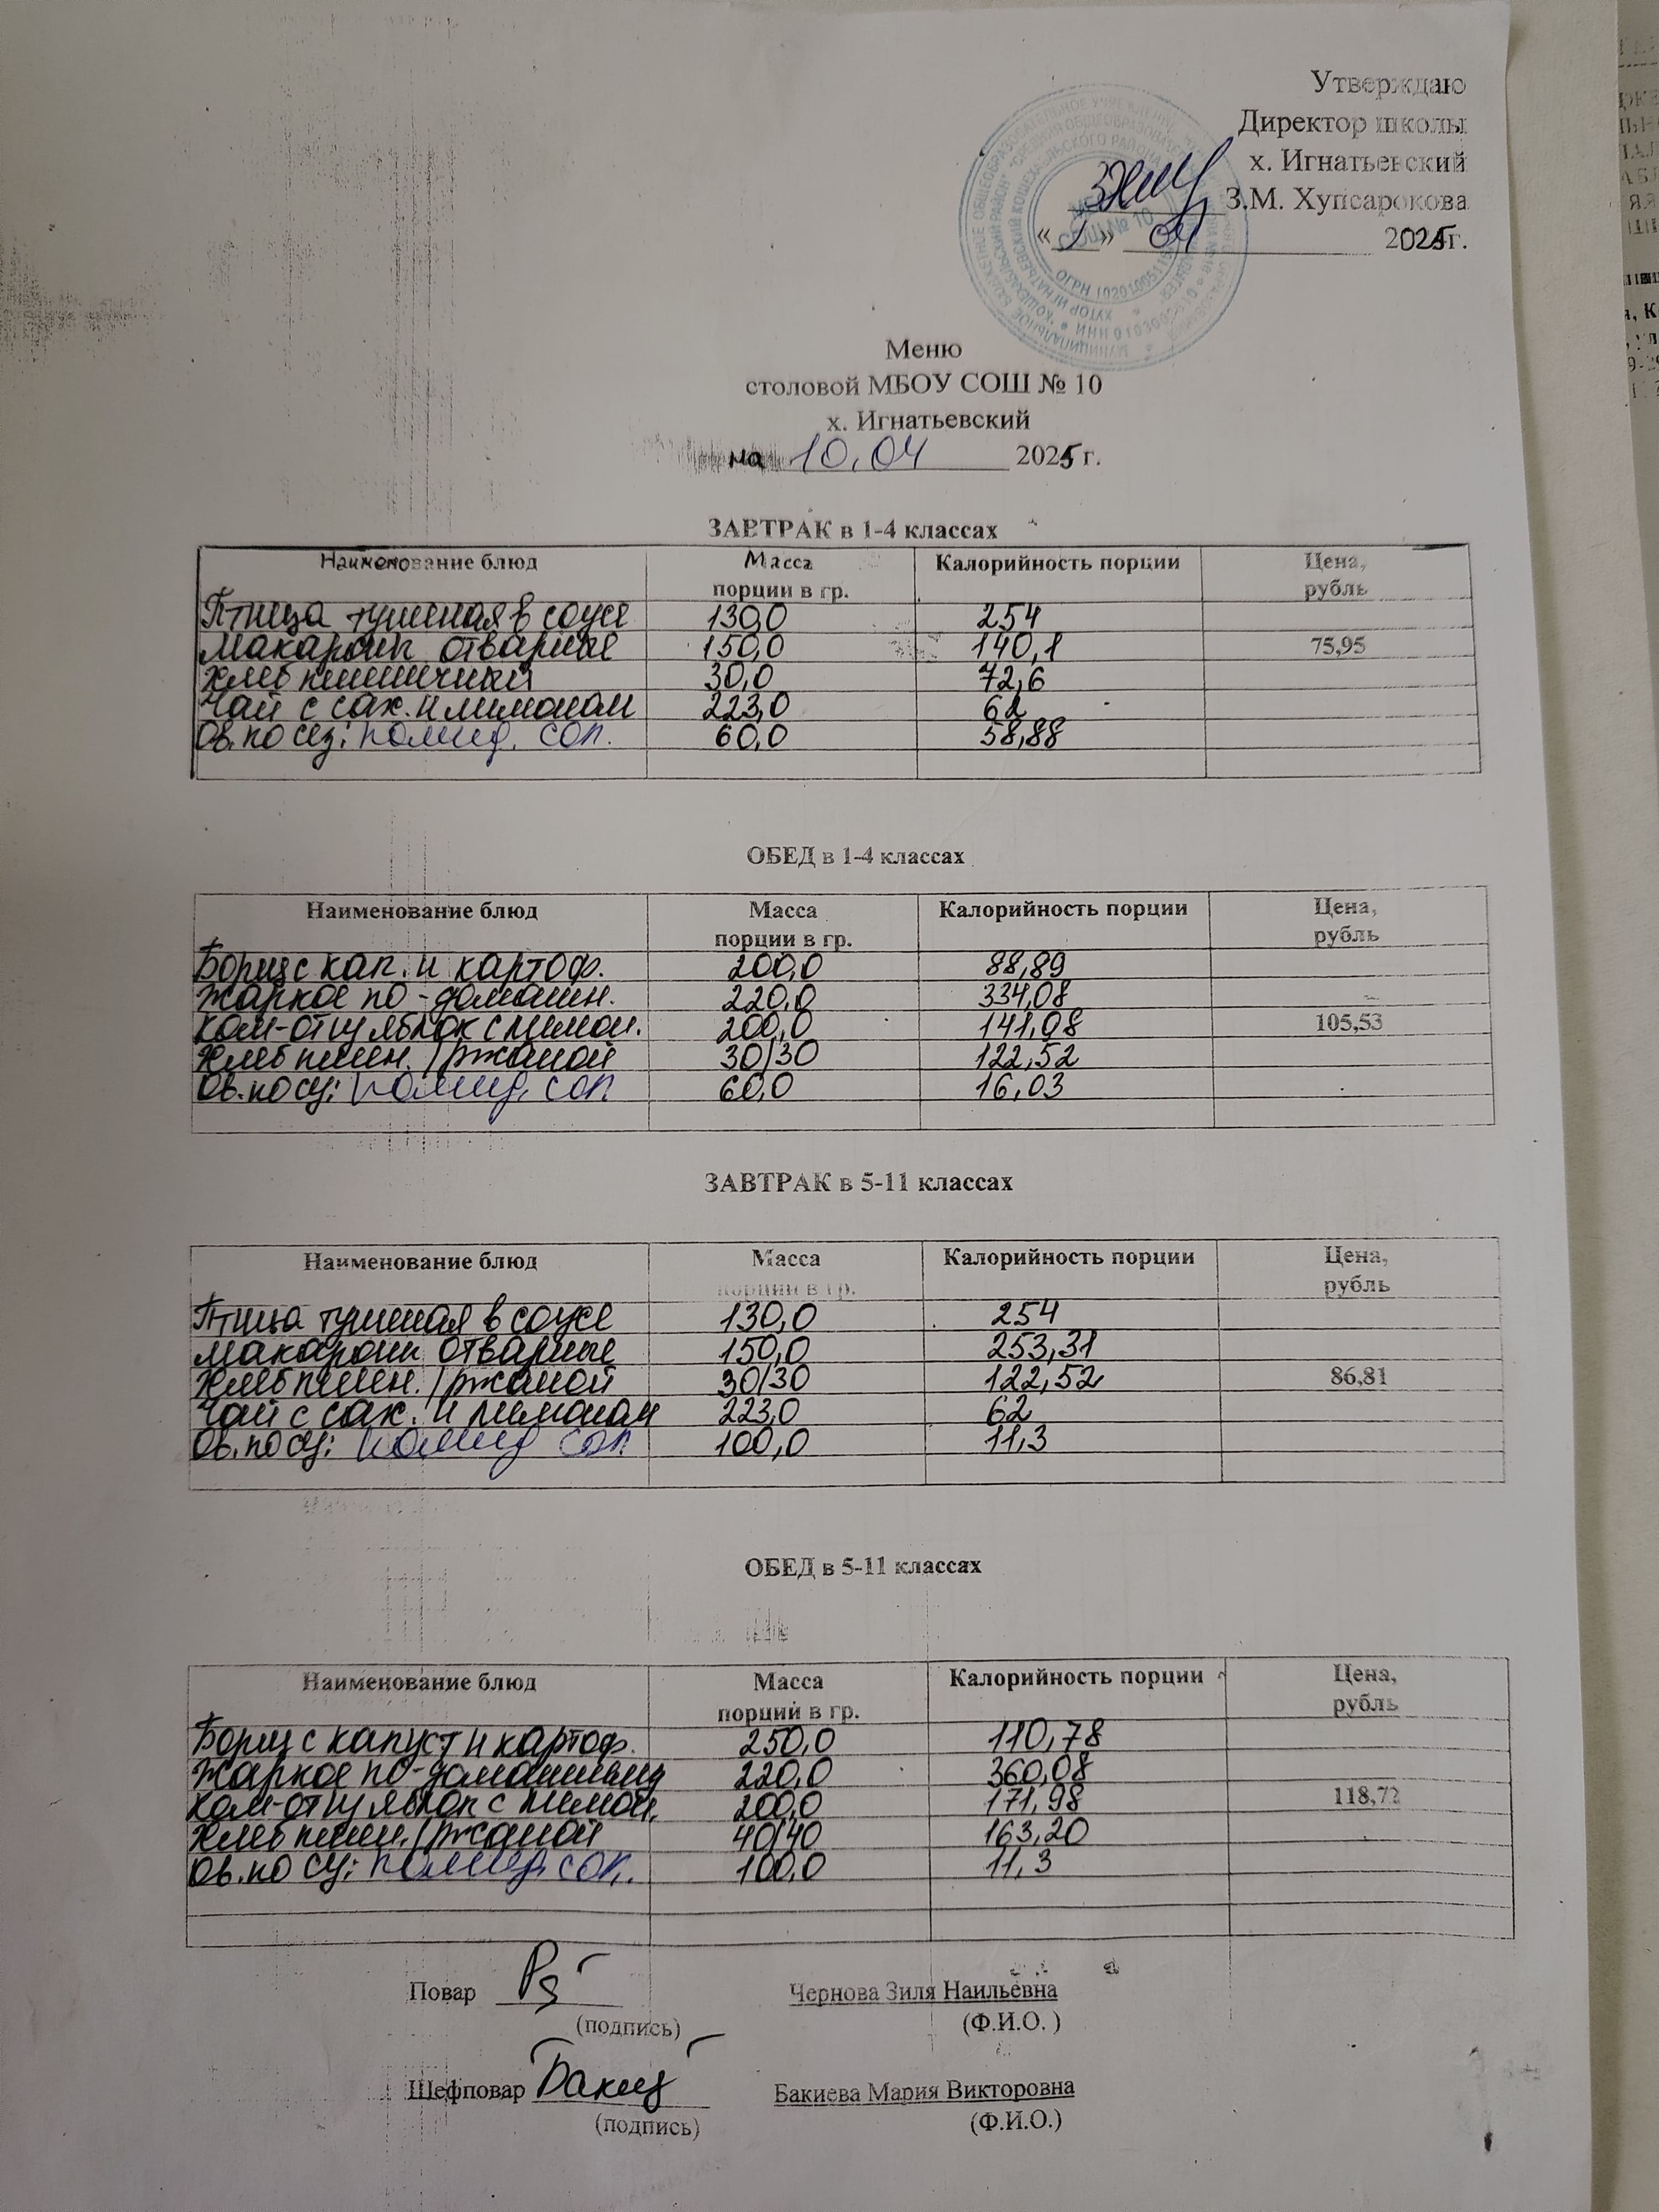 Утверждаю
Директор школы
х. Игнатьевский
З.М. Хупсарокова
«1» 04 2025г.
СОШ № 10
Меню
столовой МБОУ СОШ № 10
х. Игнатьевский
на 10.04 2025 г.
ЗАВТРАК в 1-4 классах
Наименование блюд Масса порции в гр. Калорийность порции Цена, рубль
Птица тушеная в соусе 130,0 254
Макароны отварные 150,0 140,1 75,95
Хлеб пшеничный 30,0 72,6
Чай с сах. и лимоном 223,0 62
Ов. по сез: помид. сол. 60,0 58,88
ОБЕД в 1-4 классах
Наименование блюд Масса порции в гр. Калорийность порции Цена, рубль
Борщ с кап. и картоф. 200,0 88,89
Жаркое по-домашн. 220,0 334,08
Ком-от из яблок с лимон. 200,0 141,98 105,53
Хлеб пшен. /ржаной 30/30 122,52
Ов. по сез: помид. сол 60,0 16,03
ЗАВТРАК в 5-11 классах
Наименование блюд Масса порции в гр. Калорийность порции Цена, рубль
Птица тушеная в соусе 130,0 254
Макароны отварные 150,0 253,31
Хлеб пшен. /ржаной 30/30 122,52 86,81
Чай с сах. и лимоном 223,0 62
Ов. по сез: помид сол 100,0 11,3
ОБЕД в 5-11 классах
Наименование блюд Масса порций в гр. Калорийность порции Цена, рубль
Борщ с капуст и картоф. 250,0 110,78
Жаркое по-домашнему 220,0 360,08
Ком-от из яблок с лимон. 200,0 171,98 118,72
Хлеб пшен. /ржаной 40/40 163,20
Ов. по сез: помид. сол. 100,0 11,3
Повар Чернова Зиля Наильевна
(подпись) (Ф.И.О. )
Шефповар Бакиев Бакиева Мария Викторовна
(подпись) (Ф.И.О.)